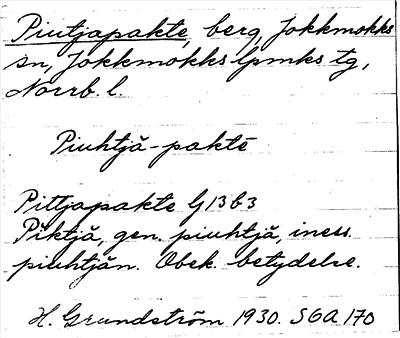 Piutjapakte, berg, Jokkmokks
sn, Jokkmokks lpmks tg,
Norrb. l.
Piuhtjă-paktē
Pittjapakte G13b3
Piktjă, gen. piuhtjă, iness.
piuhtjăn. Obek. betydelse.
H. Grundström 1930. SOA 170